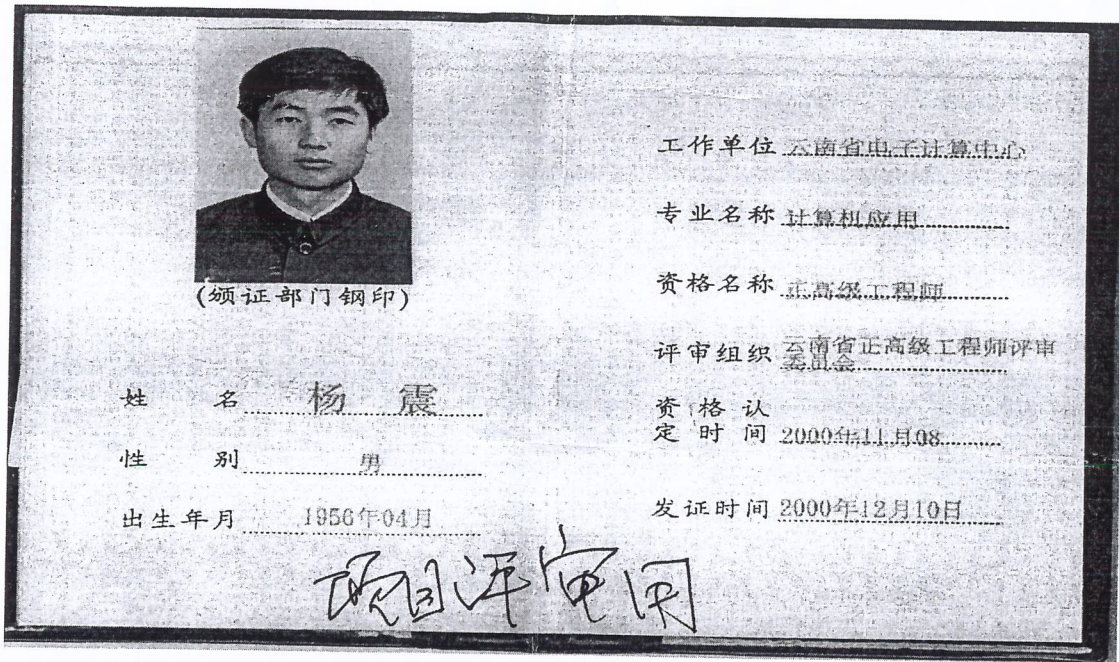 (颁证部门钢印)
姓 名 杨 震
性 别 男
出生年月 1956年04月
工作单位 云南省电子计算中心
专业名称 计算机应用
资格名称 正高级工程师
评审组织 云南省正高级工程师评审
委员会
资格认
定时间 2000年11月08
发证时间 2000年12月10日
项目评审用